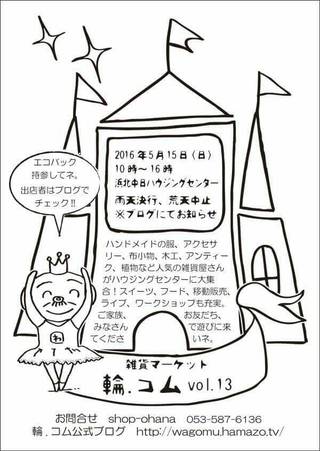 2016年5月15日（日）
10時〜16時
浜北中日ハウジングセンター
雨天決行、荒天中止
※ブログにてお知らせ
エコバック
持参してネ。
出店者はブログで
チェック!!
ハンドメイドの服、アクセサ
リー、布小物、木工、アンティー
ク、植物など人気の雑貨屋さん
がハウジングセンターに大集
合！スイーツ、フード、移動販売、
ライブ、ワークショップも充実。
ご家族、お友だち、
みなさんで遊びに来
てくださいネ。
わ
雑貨マーケット
輪.コム vol.13
お問合せ shop-ohana 053-587-6136
輪.コム公式ブログ http://wagomu.hamazo.tv/